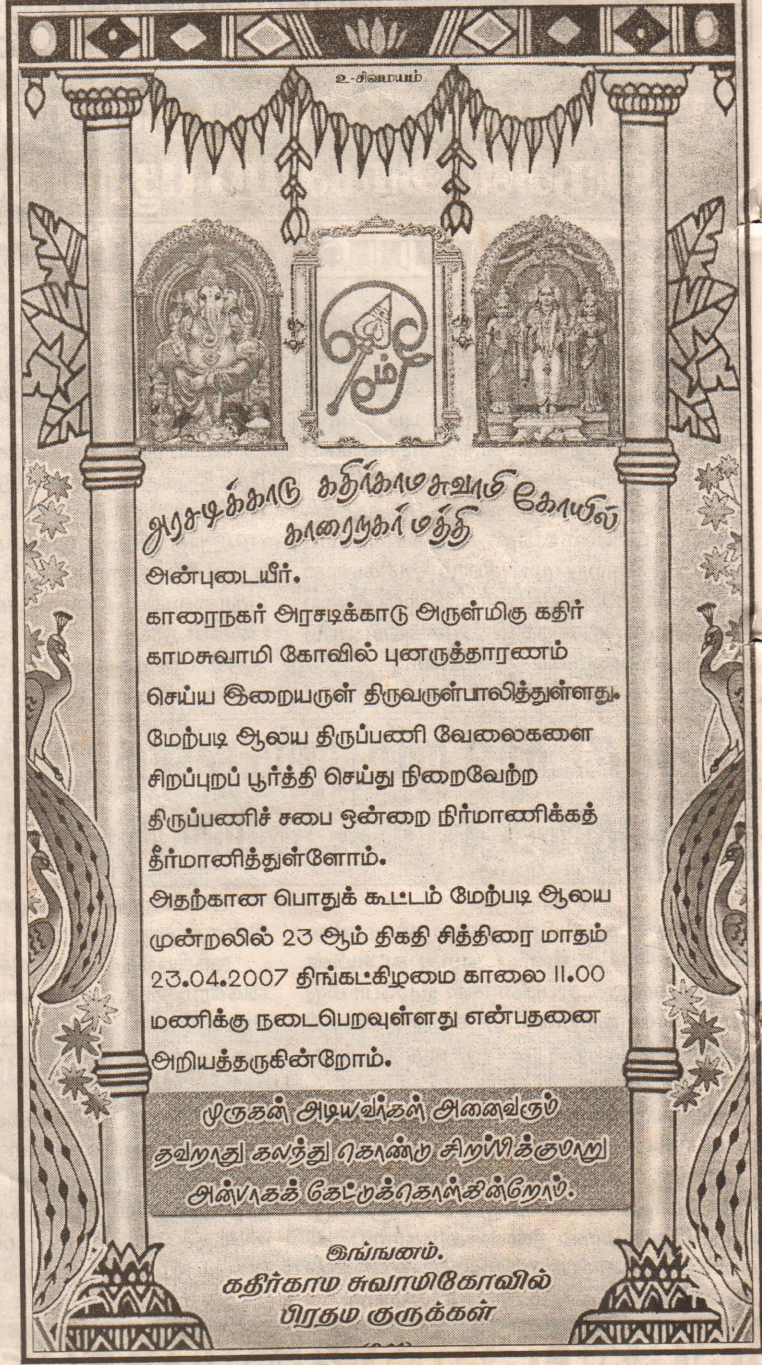 உ-சிவமயம்
ஓம்
அரசடிக்காடு கதிர்காமசுவாமி கோயில்
காரைநகர் மத்தி
அன்புடையீர்.
காரைநகர் அரசடிக்காடு அருள்மிகு கதிர்
காமசுவாமி கோவில் புனருத்தாரணம்
செய்ய இறையருள் திருவருள்பாலித்துள்ளது.
மேற்படி ஆலய திருப்பணி வேலைகளை
சிறப்புறப் பூர்த்தி செய்து நிறைவேற்ற
திருப்பணிச் சபை ஒன்றை நிர்மாணிக்கத்
தீர்மானித்துள்ளோம்.
அதற்கான பொதுக் கூட்டம் மேற்படி ஆலய
முன்றலில் 23 ஆம் திகதி சித்திரை மாதம்
23.04.2007 திங்கட்கிழமை காலை 11.00
மணிக்கு நடைபெறவுள்ளது என்பதனை
அறியத்தருகின்றோம்.
முருகன் அடியவர்கள் அனைவரும்
தவறாது கலந்து கொண்டு சிறப்பிக்குமாறு
அன்பாகக் கேட்டுக்கொள்கின்றோம்.
இங்ஙனம்.
கதிர்காம சுவாமிகோவில்
பிரதம குருக்கள்